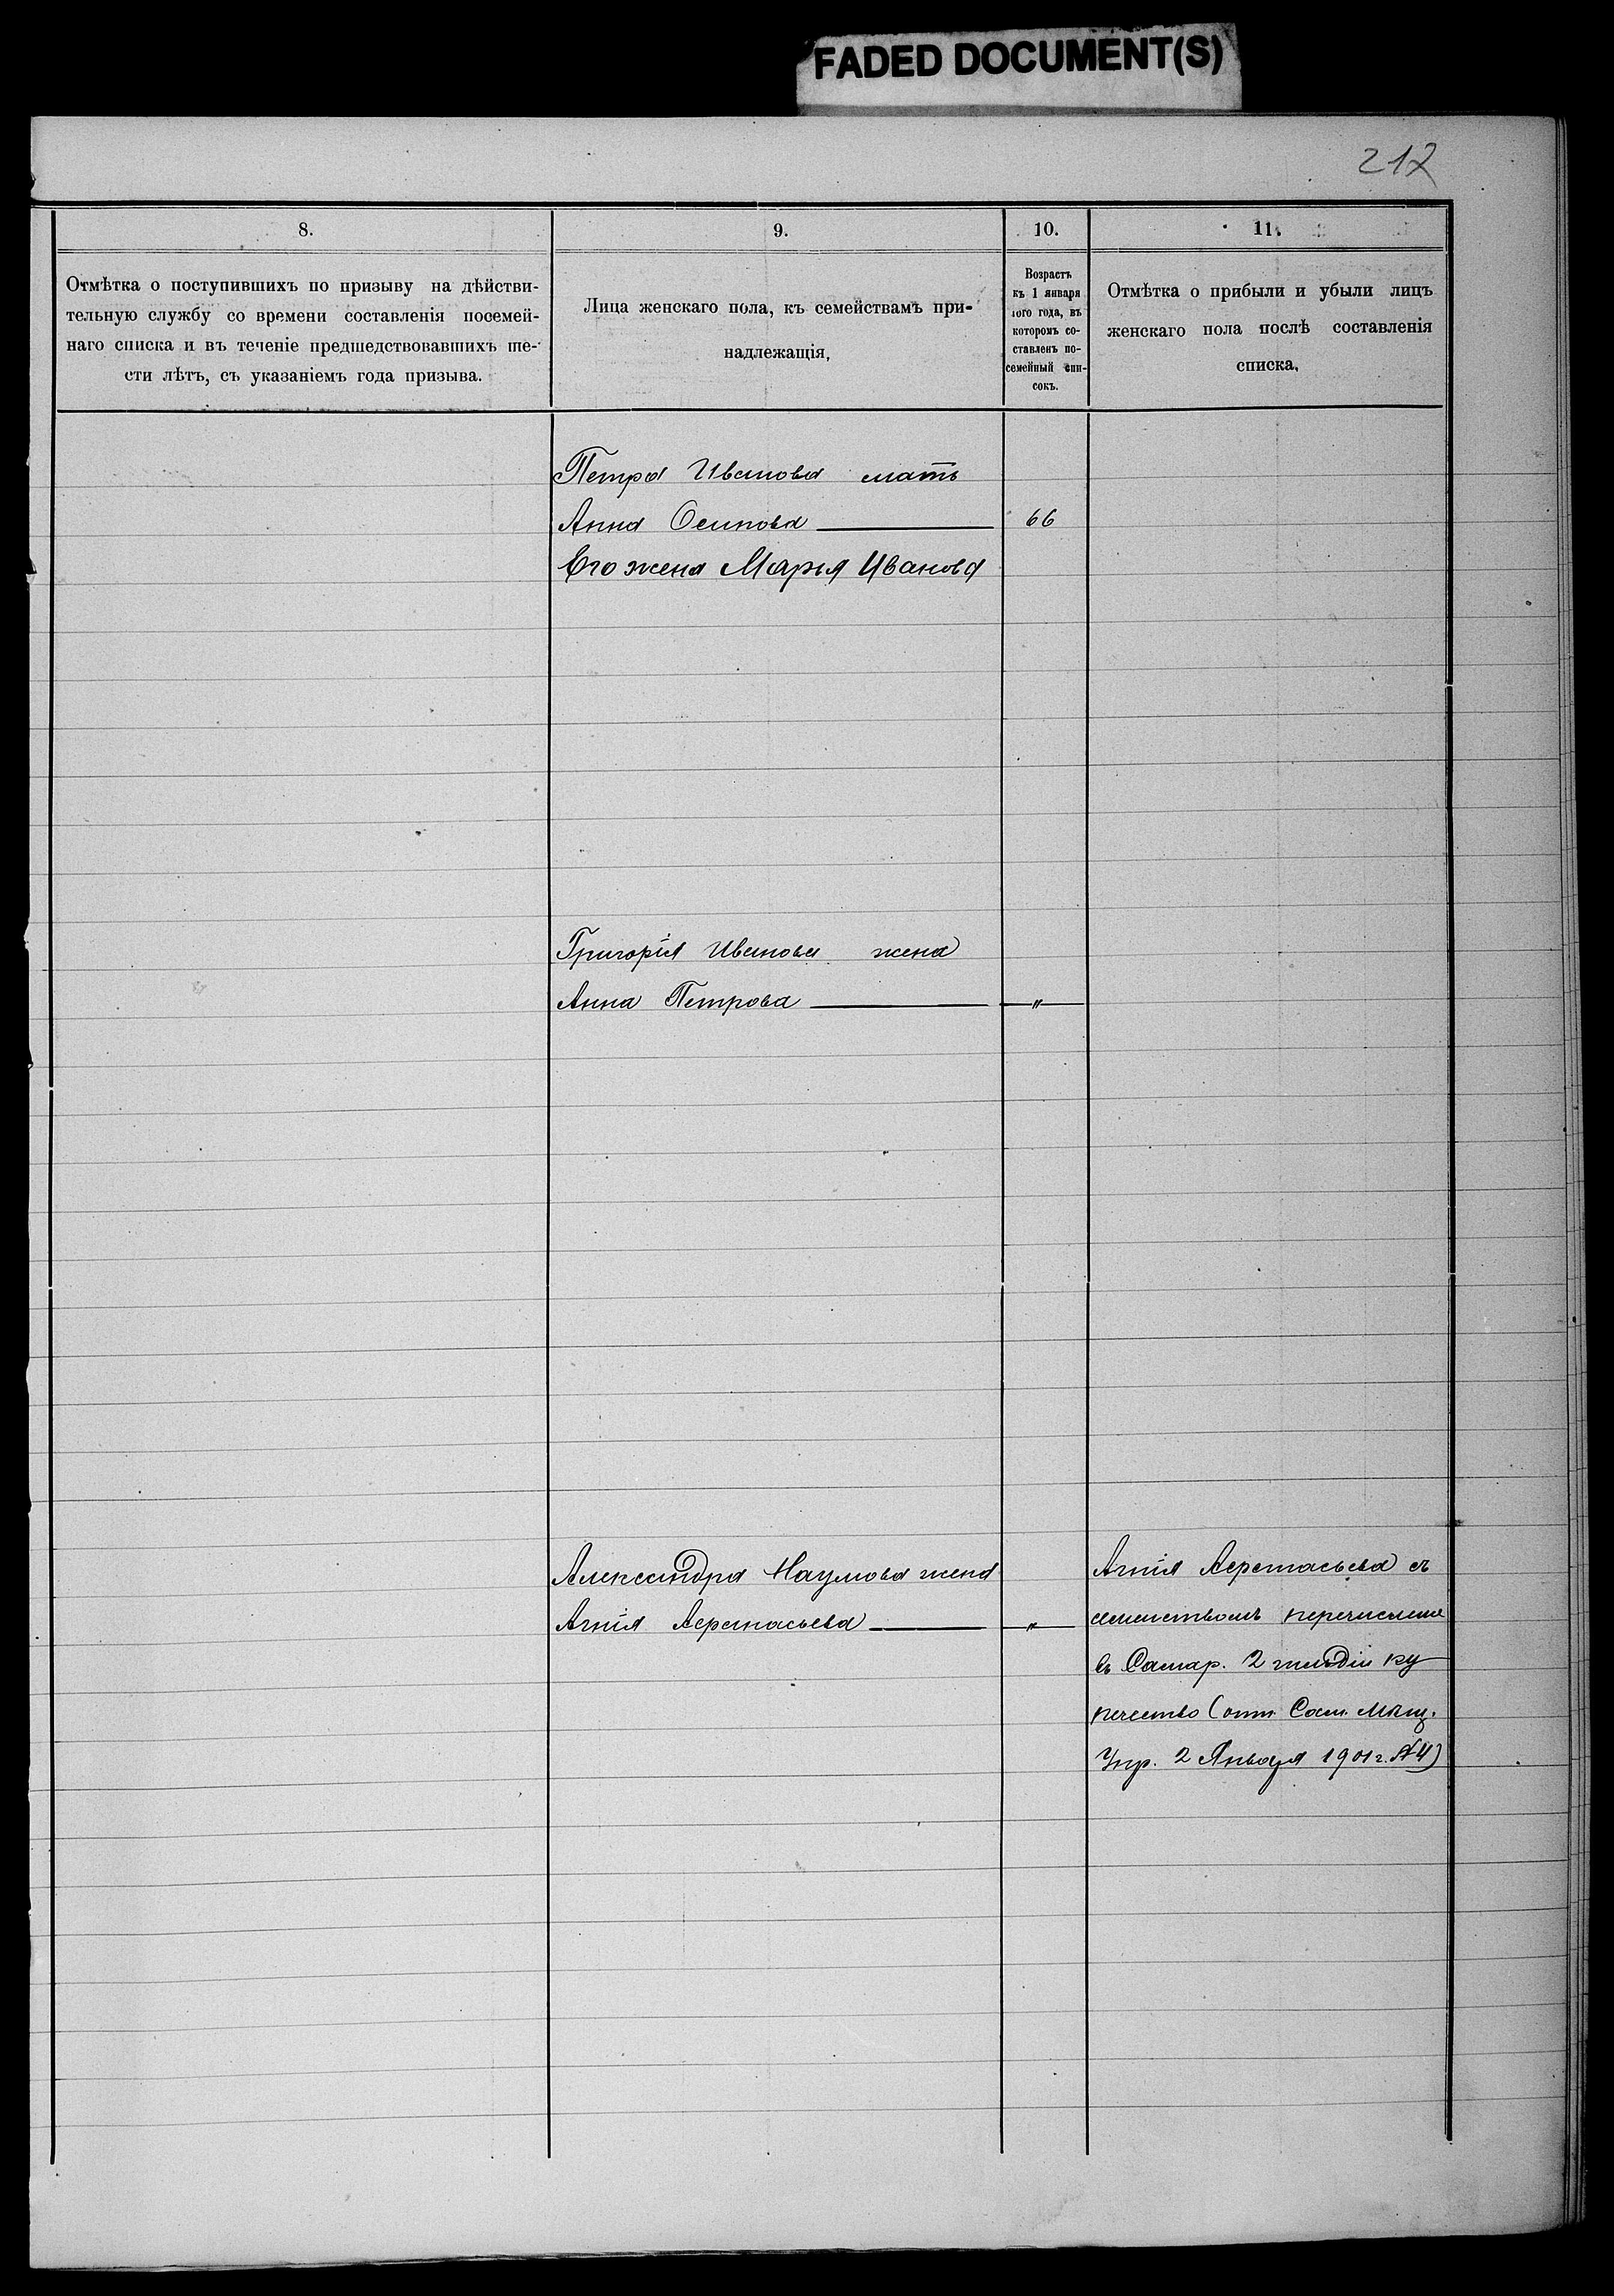 FADED DOCUMENT(S)
217
8.
9.
10.
11.
Отмѣтка о поступившихъ по призыву на дѣйстви-
тельную службу со времени составленія посемей-
наго списка и въ теченіе предшедствовавшихъ ше-
сти лѣтъ, съ указаніемъ года призыва.
Лица женскаго пола, къ семействамъ при-
надлежащія,
Возрастъ
къ 1 января
того года, въ
которомъ со-
ставленъ по-
семейный спи-
сокъ.
Отмѣтка о прибыли и убыли лицъ
женскаго пола послѣ составленія
списка.
Петра Иванова мать
Анна Осипова 66
Его жена Марья Иванова
Григорія Иванова жена
Анна Петрова "
Александра Наумова жена
Агнія Аѳанасьева "
Агнія Аѳанасьева съ
семействомъ перечислена
въ Самар. 2 гильдіи ку
печество (отн. Сам. Мѣщ.
Упр. 2 Января 1901 г. № 4)